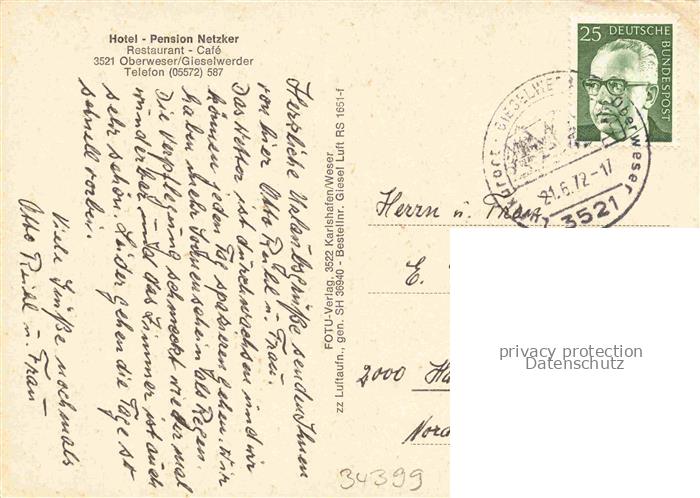 Hotel - Pension Netzker
Restaurant - Café
3521 Oberweser/Gieselwerder
Telefon (05572) 587
Herzliche Urlaubsgrüße senden Ihnen
von hier Otto Reihl u. Frau.
Das Wetter ist durchwachsen und wir
können jeden Tag spazieren gehen. Wir
haben mehr Sonnenschein als Regen.
Die Verpflegung schmeckt wieder mal
wunderbar und das Zimmer ist auch
sehr schön. Leider gehen die Tage so
schnell vorbei.
Viele Grüße nochmals
Otto Reihl u. Frau
FOTU-Verlag, 3522 Karlshafen/Weser
gen. SH 36940 - Bestellnr. Giesel Luft RS 1651-f
zz Luftaufn.,
25 DEUTSCHE
BUNDESPOST
GIESELWE
Oberweser
21.6.72-17
3521
Herrn u. Frau
E.
2000 Ha
Nord
34399
privacy protection
Datenschutz